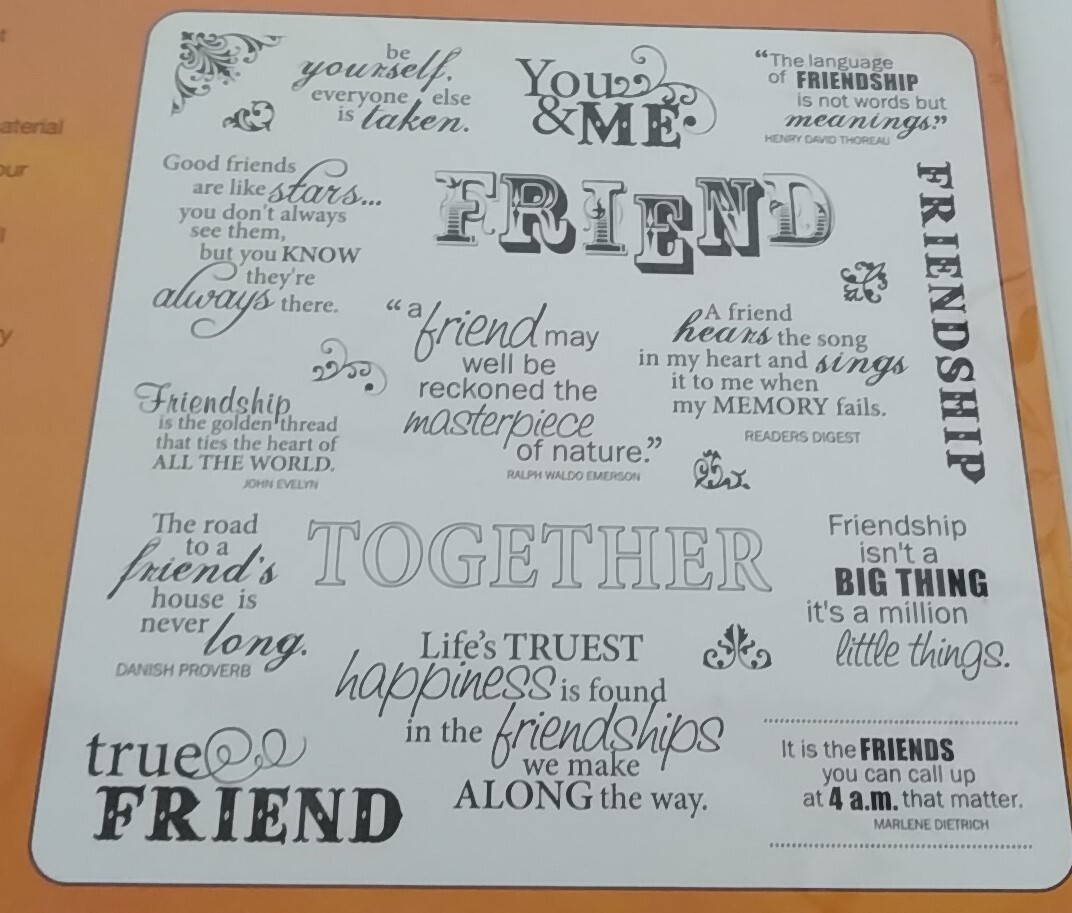 t
aterial
our
l
y
be
yourself.
everyone else
is taken.
You
&ME
“The language
of FRIENDSHIP
is not words but
meanings.”
HENRY DAVID THOREAU
Good friends
are like stars...
you don't always
see them,
but you KNOW
they're
always there.
FRIEND
FRIENDSHIP
“a
friend may
well be
reckoned the
masterpiece
of nature.”
RALPH WALDO EMERSON
A friend
hears the song
in my heart and sings
it to me when
my MEMORY fails.
READERS DIGEST
Friendship
is the golden thread
that ties the heart of
ALL THE WORLD.
JOHN EVELYN
The road
to a
friend's
house is
never long.
DANISH PROVERB
TOGETHER
Friendship
isn't a
BIG THING
it's a million
little things.
Life's TRUEST
happiness is found
in the friendships
we make
ALONG the way.
true
FRIEND
It is the FRIENDS
you can call up
at 4 a.m. that matter.
MARLENE DIETRICH